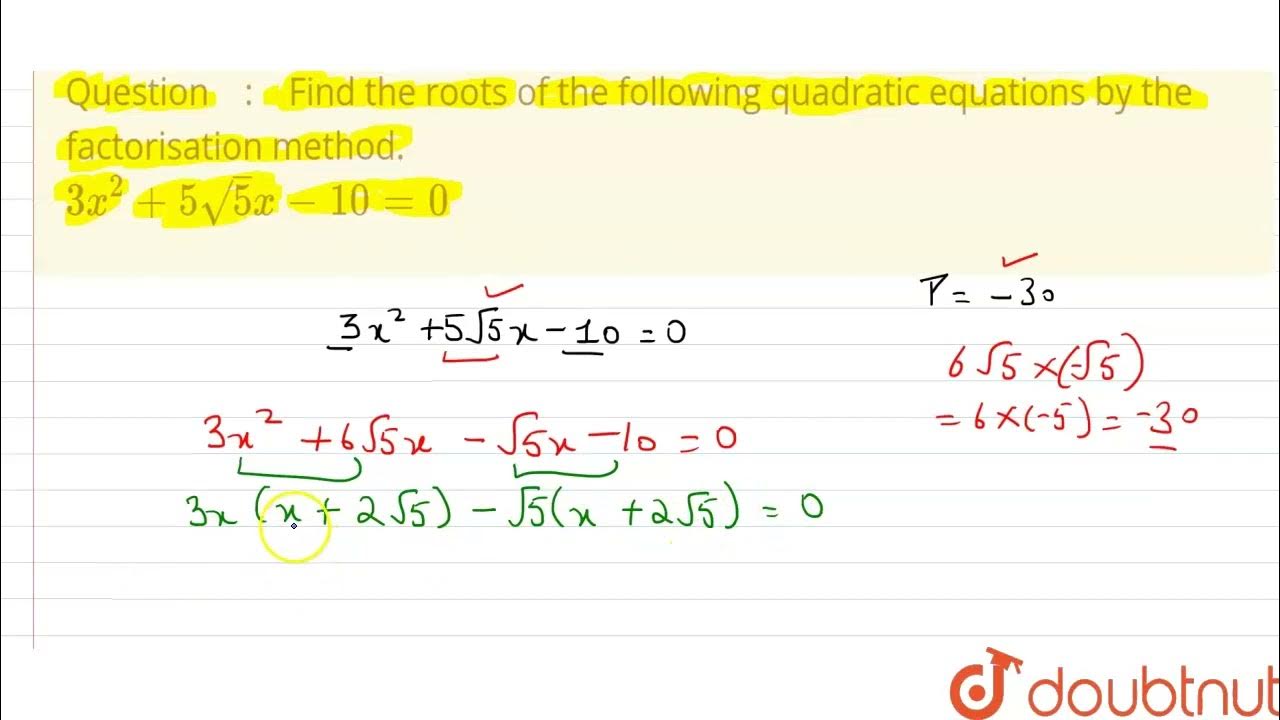 Question : Find the roots of the following quadratic equations by the
factorisation method.
3x² + 5√5x − 10 = 0
P = −30
3x² + 5√5x − 10 = 0
6√5 × (−√5)
= 6 × (−5) = −30
3x² + 6√5x − √5x − 10 = 0
3x (x + 2√5) − √5 (x + 2√5) = 0
doubtnut